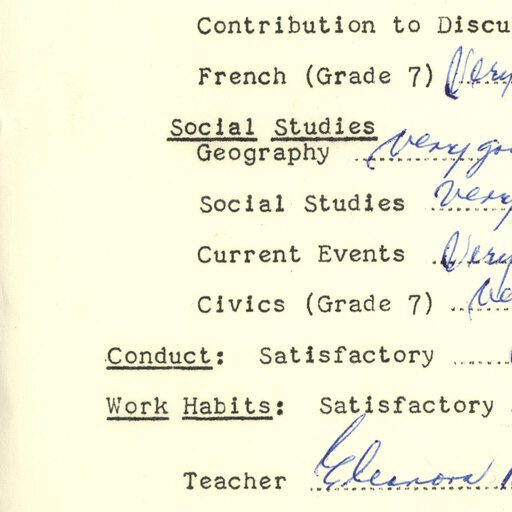 Contribution to Discu
French (Grade 7) Very
Social Studies
Geography very go
Social Studies Very
Current Events Very
Civics (Grade 7) Ve
Conduct: Satisfactory
Work Habits: Satisfactory
Teacher Eleanora